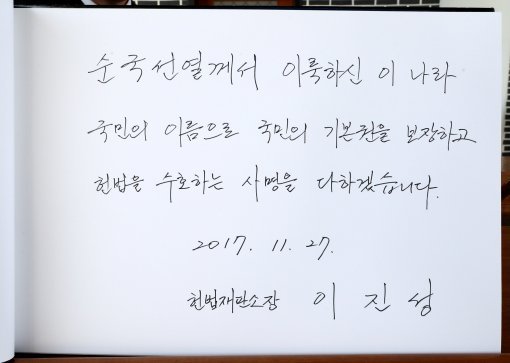 순국선열께서 이룩하신 이 나라
국민의 이름으로 국민의 기본권을 보장하고
헌법을 수호하는 사명을 다하겠습니다.
2017. 11. 27.
헌법재판소장 이 진 성